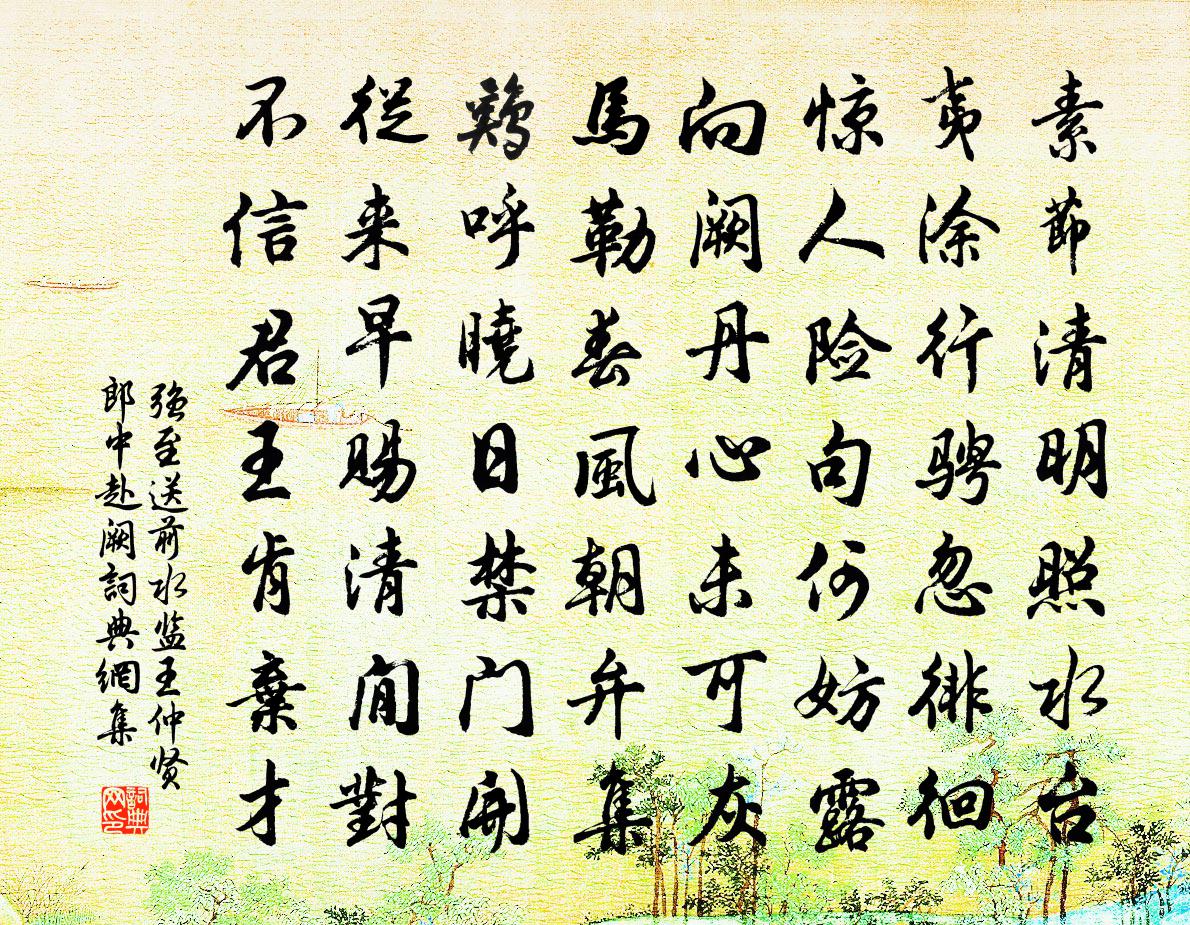 素節清明照水台
夷涂行骋忽徘徊
惊人险句何妨露
向阙丹心未可灰
馬勒春風朝弁集
鷄呼曉日禁门開
従来早赐清閒對
不信君王肯棄才
强至送前水监王仲贤
郎中赴阙詞典網集
詞典网印